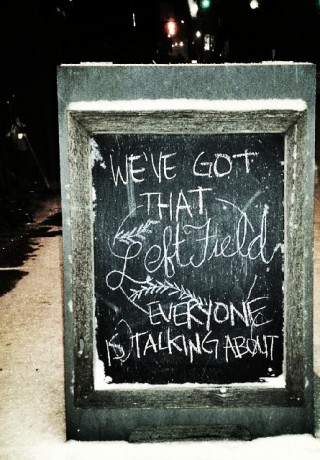 WE'VE GOT
THAT
Left Field
EVERYONE
IS TALKING ABOUT